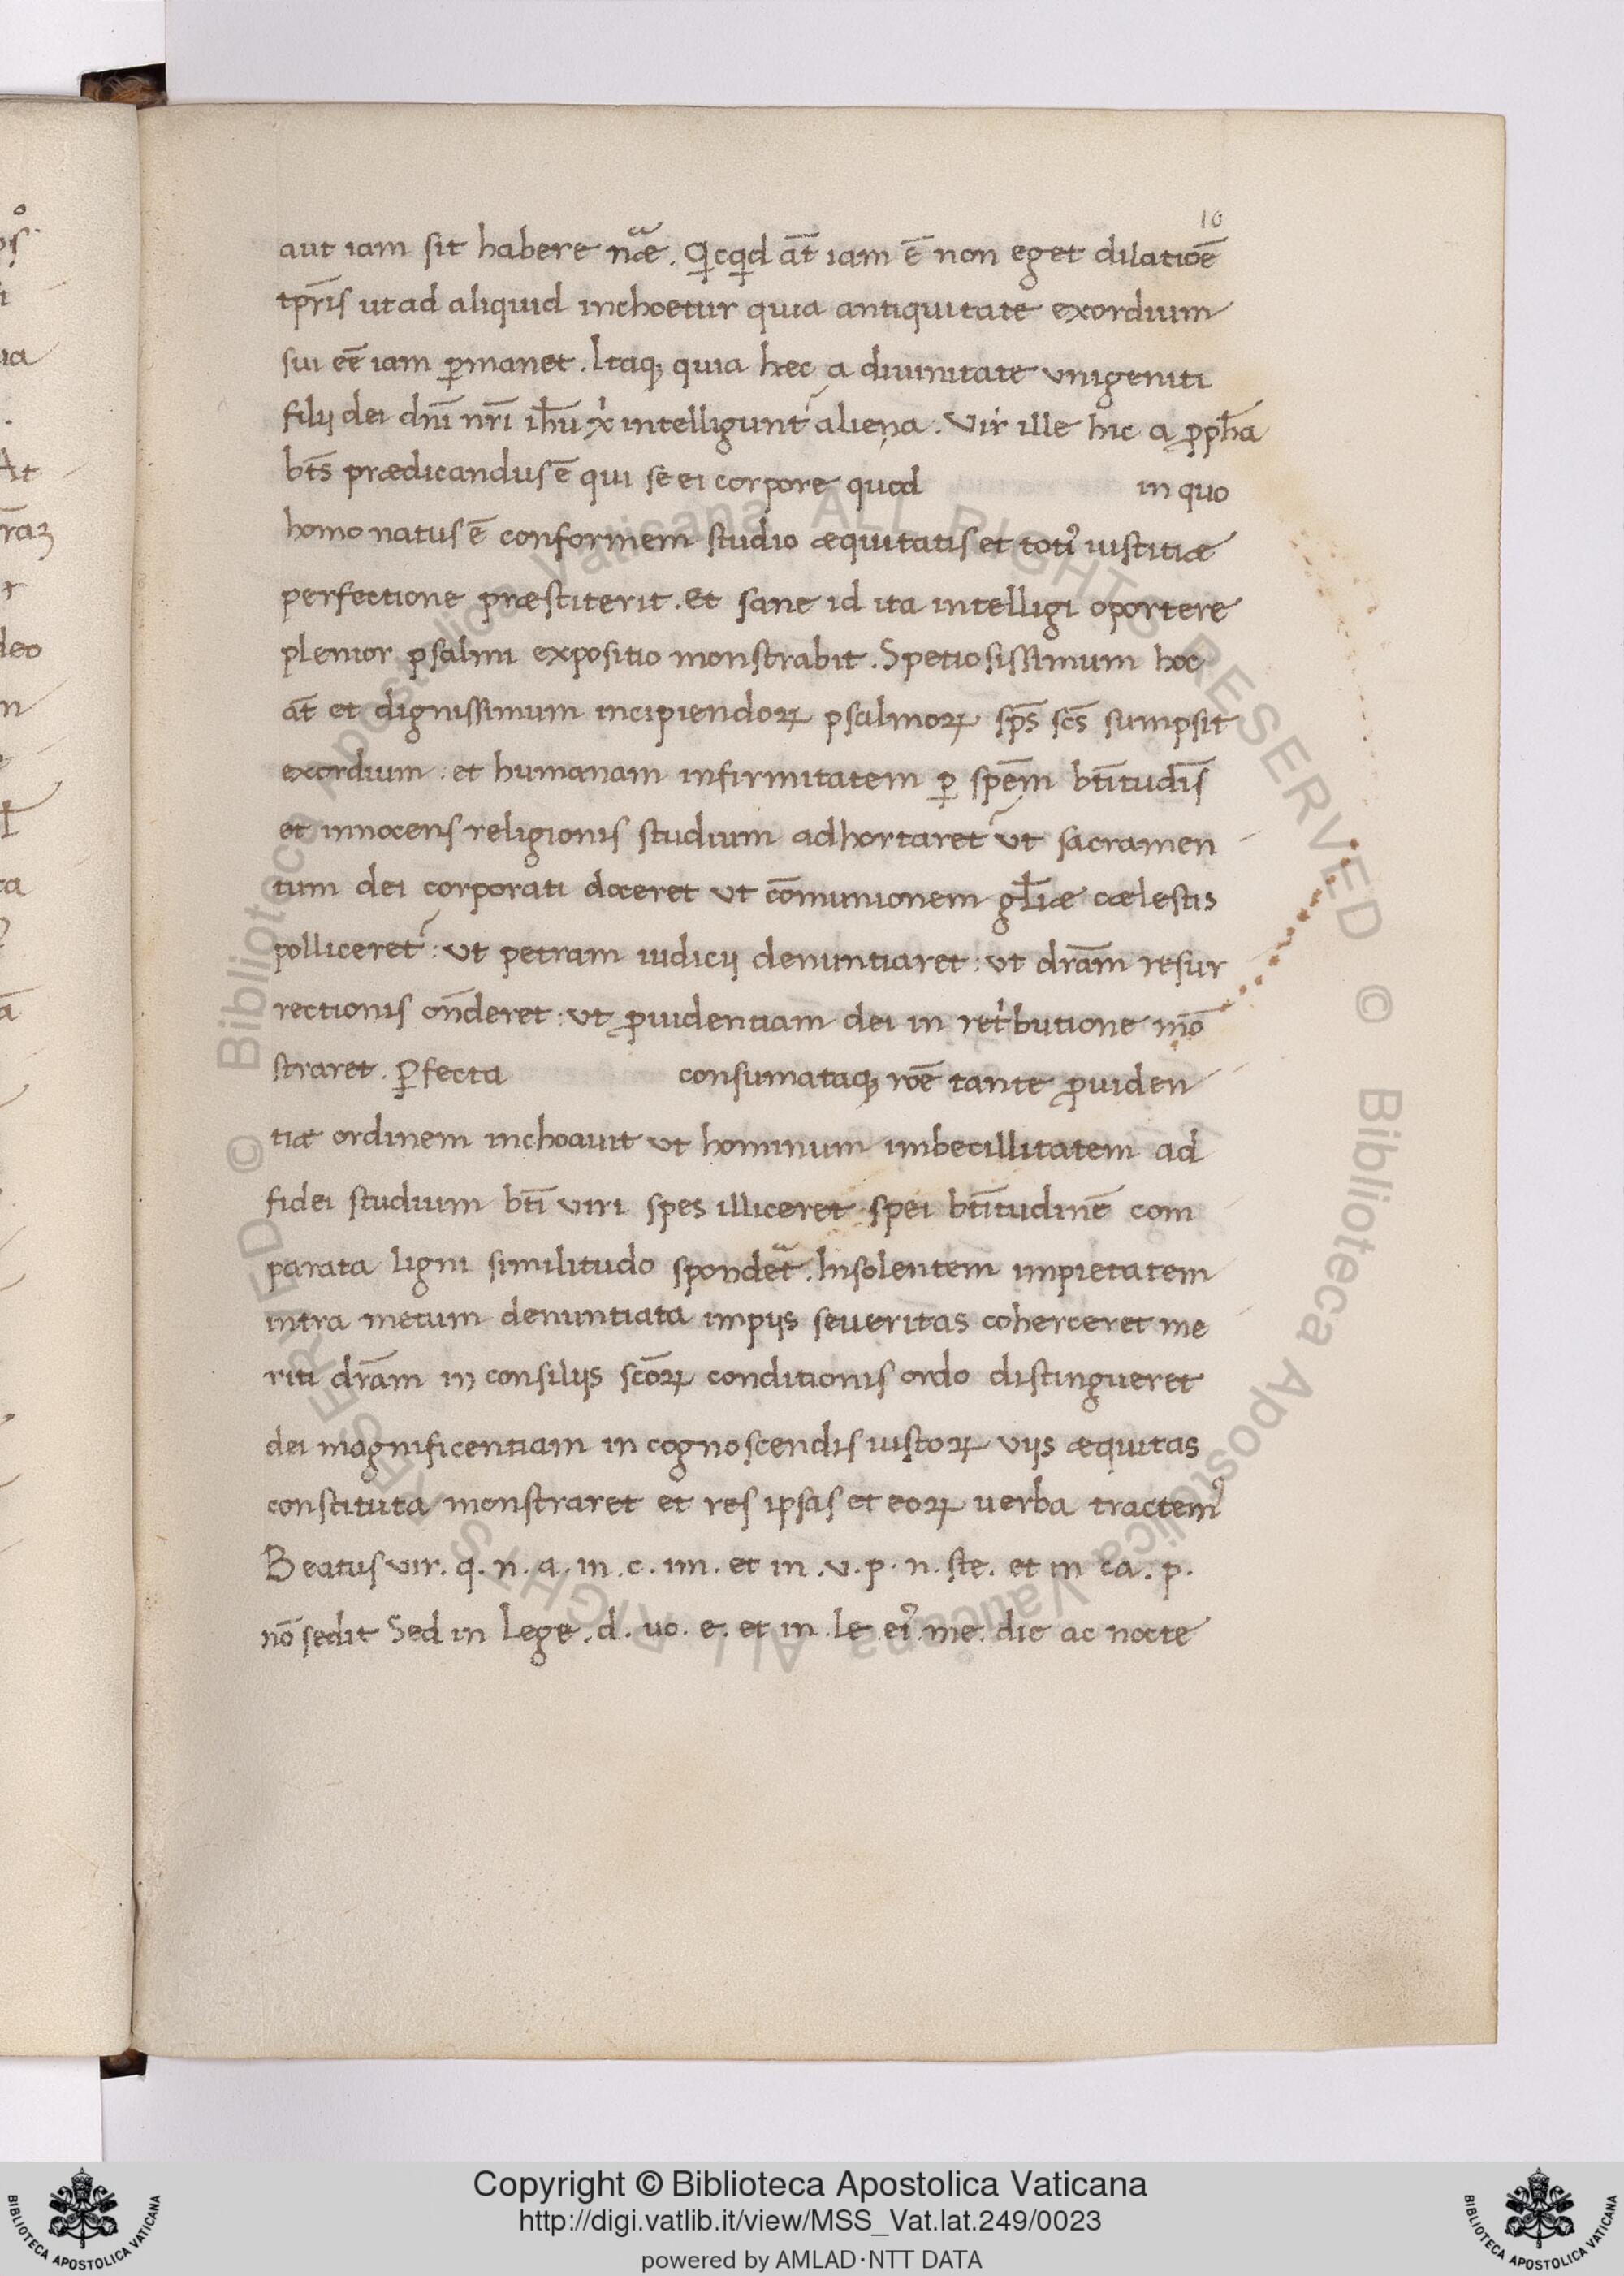 10
aut iam sit habere nᷓæ. Qͥcqͥd at̄ iam ē non eget dilatiōē
tp̄ris ut ad aliquid inchoetur quia antiquitate exordium
sui eē iam ꝑmanet. Itaqꝫ quia hec a diuinitate vnigeniti
filij dei dn̄i nr̄i ih̄u xͥ intelligunt᷑ aliena. Vir ille hic a ꝓph̄a
bt̄s prædicandus ē qui se ei corpore quod in quo
homo natus ē conformem studio æquitatis et totiꝰ iustitiæ
perfectione præstiterit. Et sane id ita intelligi oportere
plenior psalmi expositio monstrabit. Spetiosissimum hoc
at̄ et dignissimum incipiendoꝝ psalmoꝝ sp̄s sc̄s sumpsit
exordium: et humanam infirmitatem ꝑ spēm bt̄itudīs
et innocens religionis studium adhortaret᷑ ut sacramen
tum dei corporati doceret ut cōmunionem gl̄iæ cælestis
polliceret᷑: ut petram iudicij denuntiaret: ut dr̄am resur
rectionis on̄deret: ut ꝓuidentiam dei in retͥbutione mō
straret. ꝑfecta consumataqꝫ rōe tante ꝓuiden
tiæ ordinem inchoauit ut hominum imbecillitatem ad
fidei studium bt̄i viri spes illiceret spei bt̄itudinē com
parata ligni similitudo spondetᷓ. Insolentem impietatem
intra metum denuntiata impijs seueritas coherceret me
riti dr̄am in consilijs scōꝝ conditionis ordo distingueret
dei magnificentiam in cognoscendis iustoꝝ vijs æquitas
constituta monstraret et res ipsas et eoꝝ uerba tractemꝰ
Beatus vir. q. n. a. in. c. im. et in. v. p. n. ste. et in ca. p.
nō sedit Sed in lege. d. uo. e. et in le eiꝰ. me. die ac nocte
Copyright © Biblioteca Apostolica Vaticana
http://digi.vatlib.it/view/MSS_Vat.lat.249/0023
powered by AMLAD·NTT DATA
BIBLIOTECA APOSTOLICA VATICANA
BIBLIOTECA APOSTOLICA VATICANA
© Biblioteca Apostolica Vaticana ALL RIGHTS RESERVED © Biblioteca Apostolica Vaticana ALL RIGHTS RESERVED